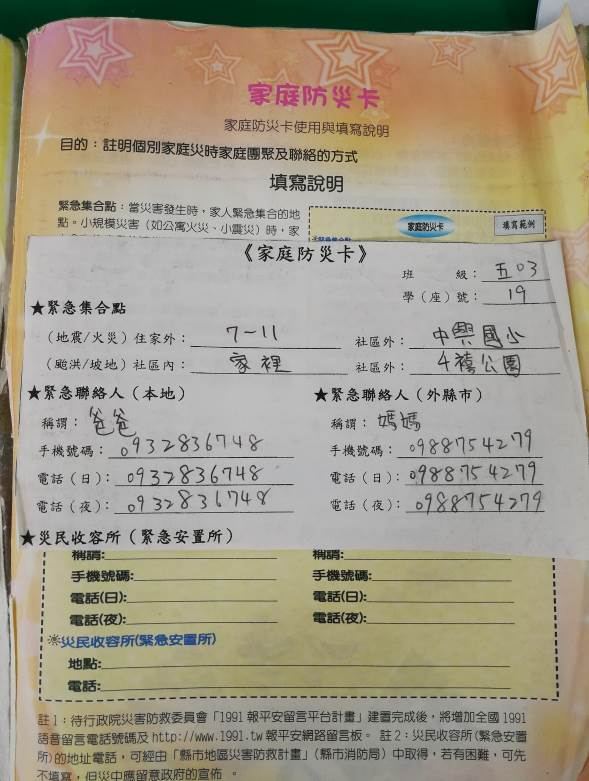 家庭防災卡
家庭防災卡使用與填寫說明
目的：註明個別家庭災時家庭團聚及聯絡的方式
填寫說明
緊急集合點：當災害發生時，家人緊急集合的地
點。小規模災害（如公寓火災、小震災）時，家
家庭防災卡 填寫範例
《家庭防災卡》
班 級：五03
學（座）號：19
★緊急集合點
（地震/火災）住家外：7-11 社區外：中興國小
（颱洪/坡地）社區內：家裡 社區外：4禧公園
★緊急聯絡人（本地） ★緊急聯絡人（外縣市）
稱謂：爸爸 稱謂：媽媽
手機號碼：0932836748 手機號碼：0988754279
電話（日）：0932836748 電話（日）：0988754279
電話（夜）：0932836748 電話（夜）：0988754279
★災民收容所（緊急安置所）
稱謂: 稱謂:
手機號碼: 手機號碼:
電話(日): 電話(日):
電話(夜): 電話(夜):
※災民收容所(緊急安置所)
地點:
電話:
註1：待行政院災害防救委員會「1991報平安留言平台計畫」建置完成後，將增加全國1991
語音留言電話號碼及http://www.1991.tw報平安網路留言板。 註2：災民收容所(緊急安置
所)的地址電話，可經由「縣市地區災害防救計畫」（縣市消防局）中取得，若有困難，可先
不填寫，但災中應留意政府的宣佈。